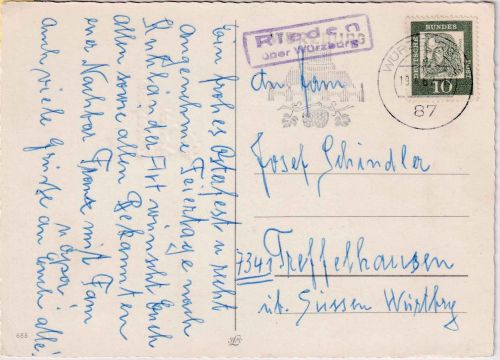 Ein frohes Osterfest u. recht
angenehme Feiertage nach
Kuhländer Art wünscht Euch
allen sowie allen Bekannten
euer Nachbar Franz mit Fam
Auch viele Grüße an Euch alle!
Rieden
über Würzburg
DEUTSCHE BUNDESPOST
10
WÜRZ
87
An Fam
Josef Schindler
7341 Treffelhausen
üb. Süssen Württbg
688